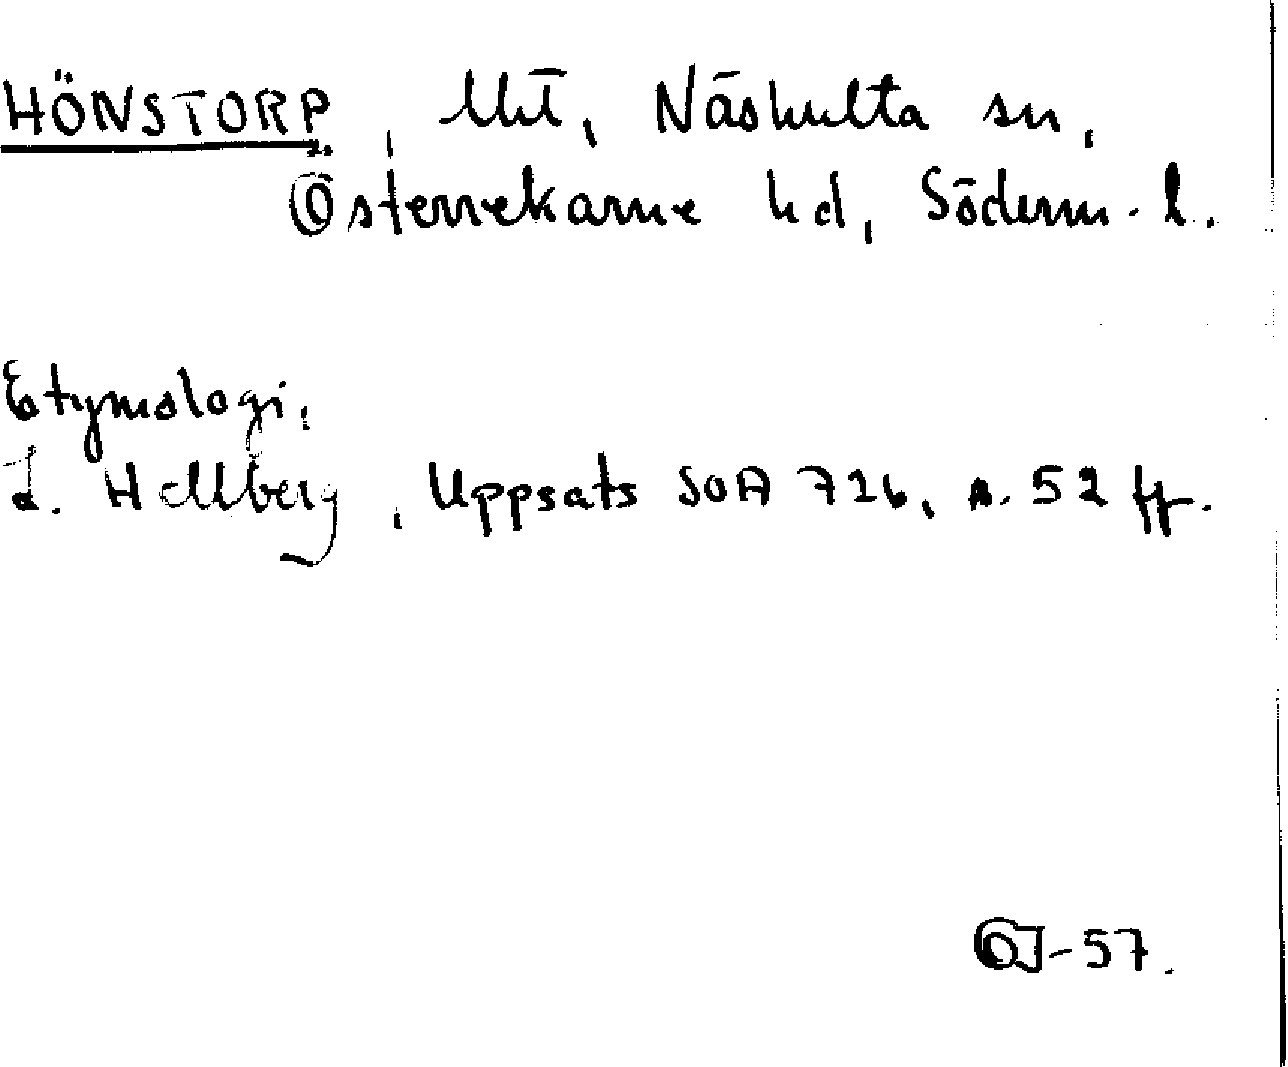 HÖNSTORP, Näshulta sn,
Österrekarne hd, Söderm. l.
Etymologi.
L. Hellberg, Uppsats SOA 726, s. 52 ff.
-57.